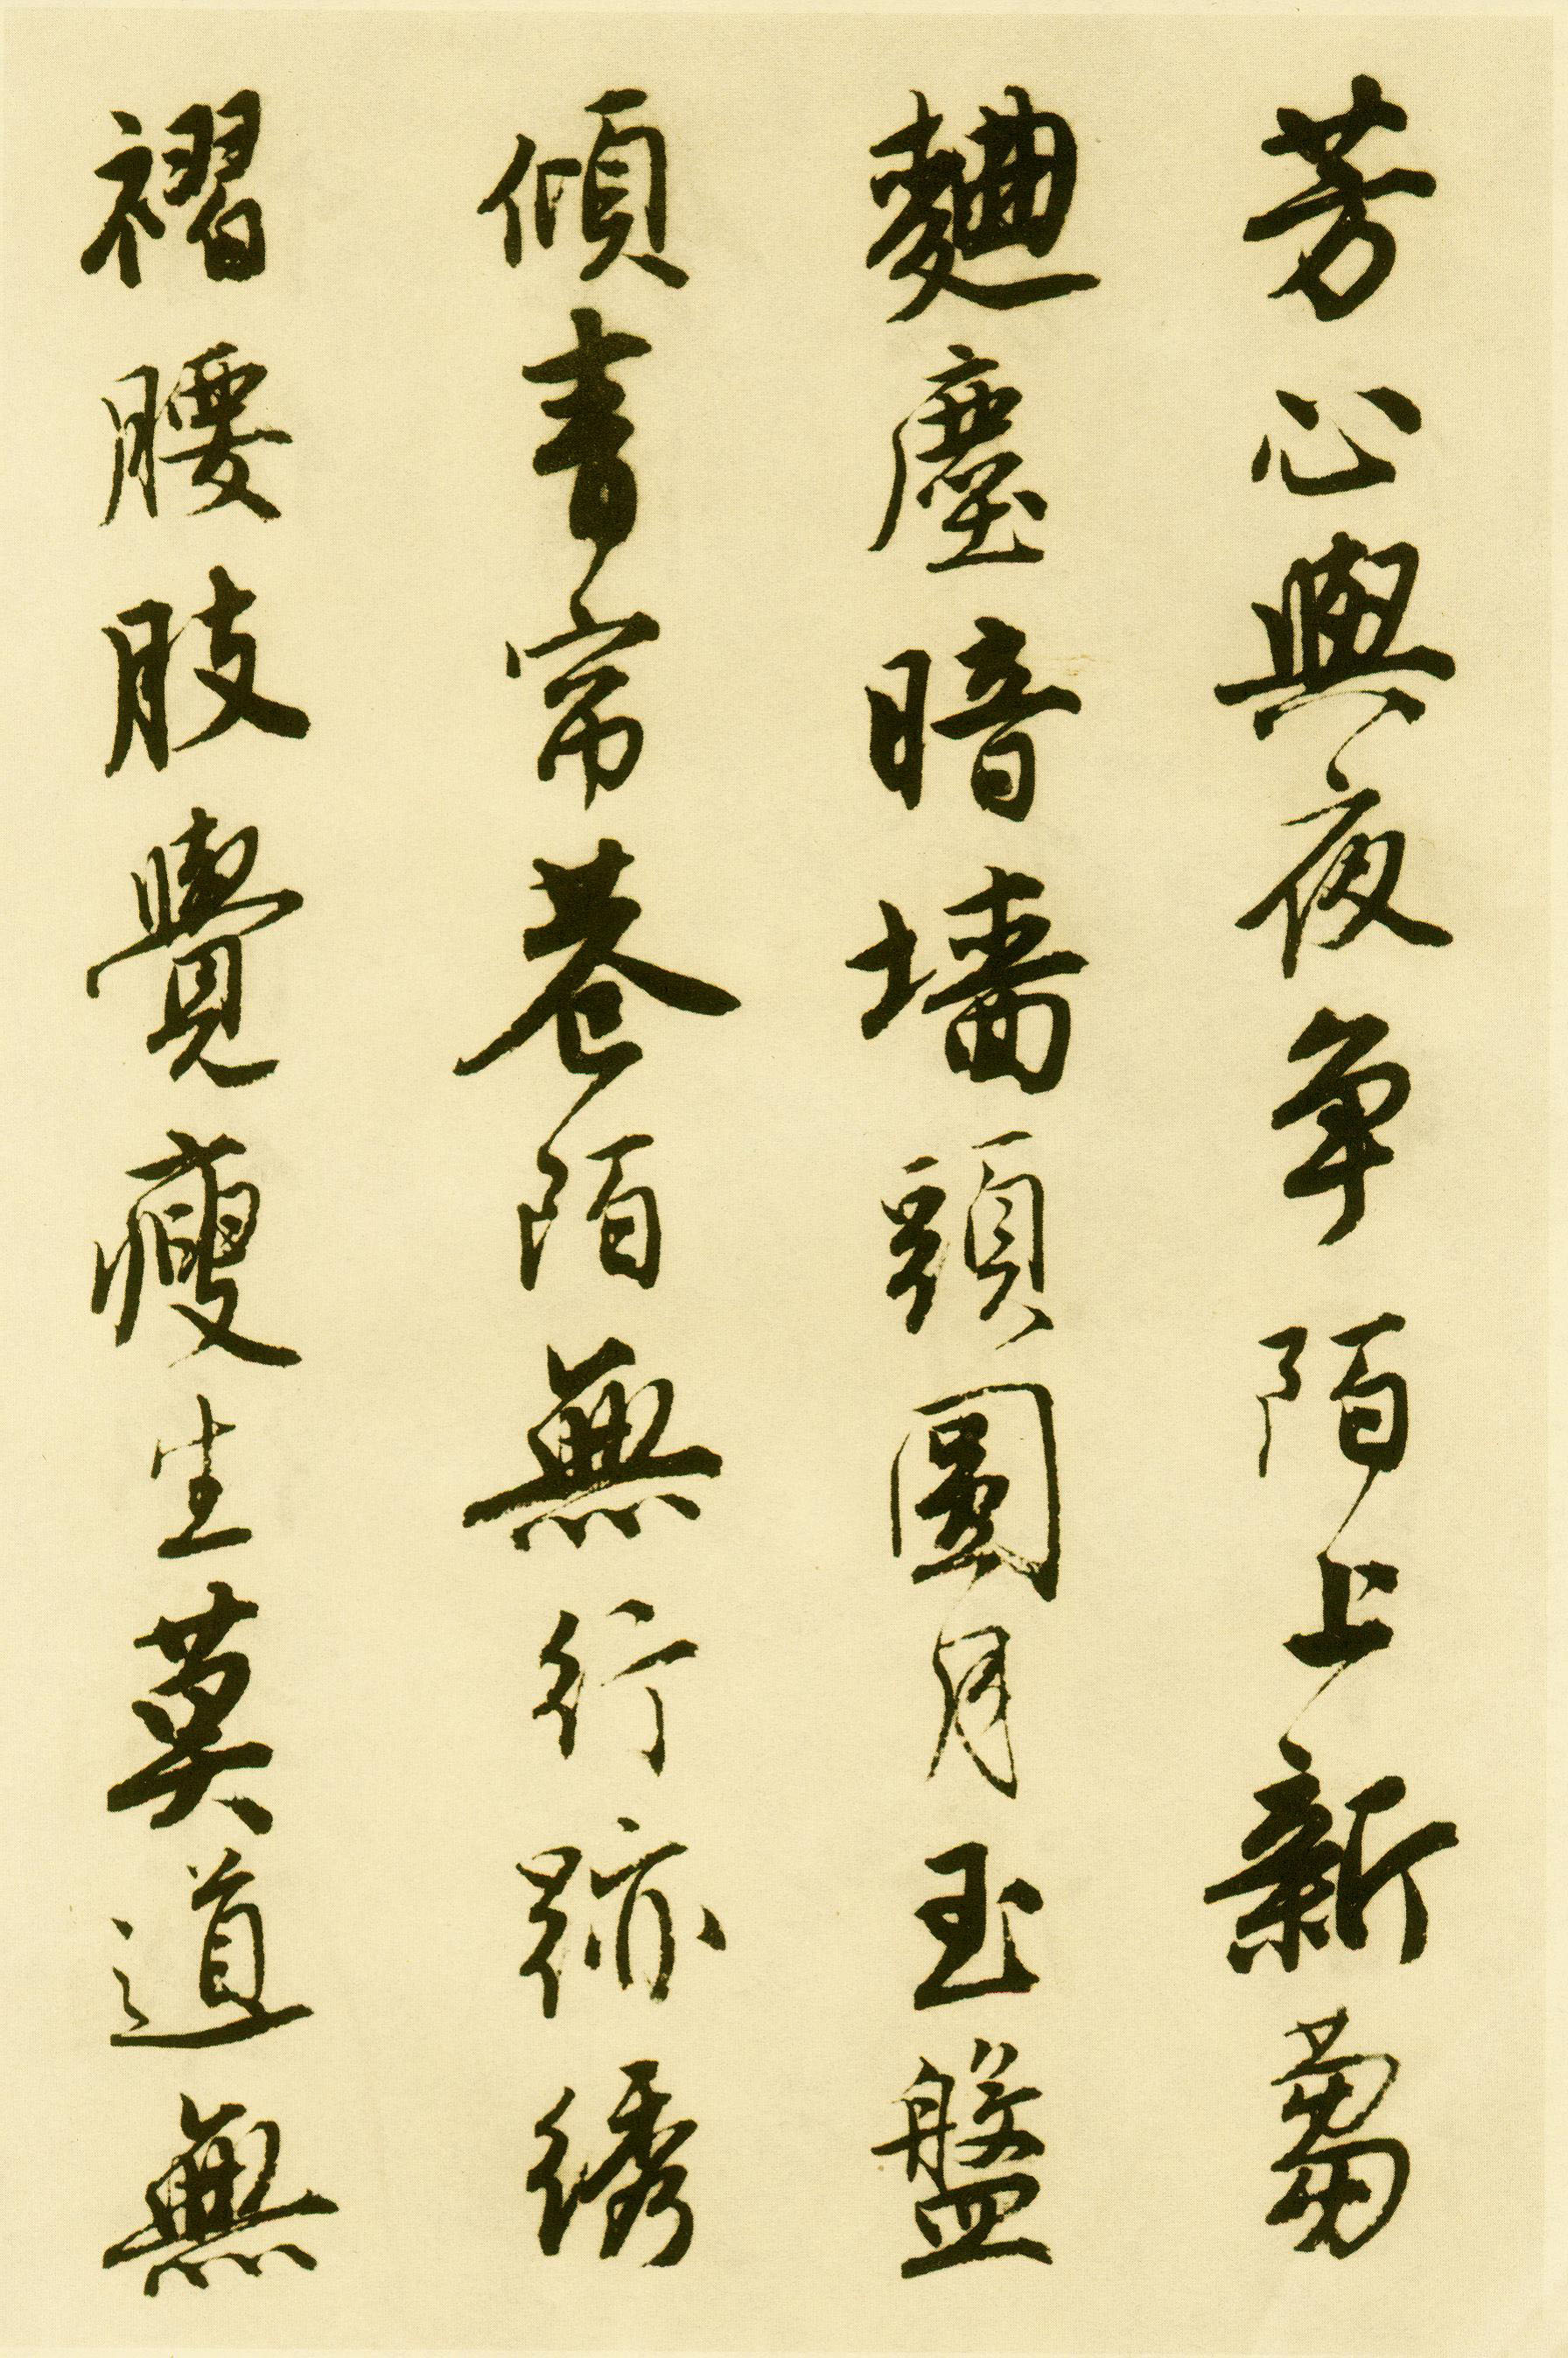 芳心與夜争陌上新蒭
麯塵暗墙頭圓月玉盤
傾青帘巷陌無行跡绣
褶腰肢覺瘦生莫道無